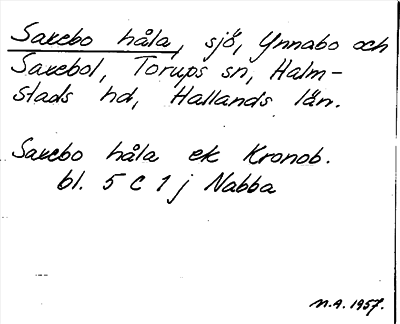 Saxebo håla, sjö, Ynnabo och
Saxebol, Torups sn, Halm-
stads hd, Hallands län.
Saxebo håla ek Kronob.
bl. 5 C 1 j Nabba
N.A. 1957.